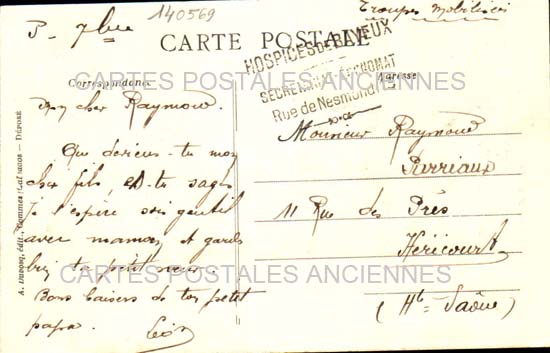 140569
Troupes mobilisées
CARTE POSTALE
HOSPICES DE BAYEUX
SECRETARIAT-ECONOMAT
Rue de Nesmond
CARTES POSTALES ANCIENNES
Correspondance
Adresse
mon cher Raymond.
Que deviens-tu mon
cher fils, es-tu sage
Je l'espère sois gentil
avec maman et garde
bien ta petit soeur.
Bons baisers de ton petit
papa. Léon
Monsieur Raymond
Pierriaux
11 Rue des Près
Héricourt
(Hte Saône)
CARTES POSTALES ANCIENNES